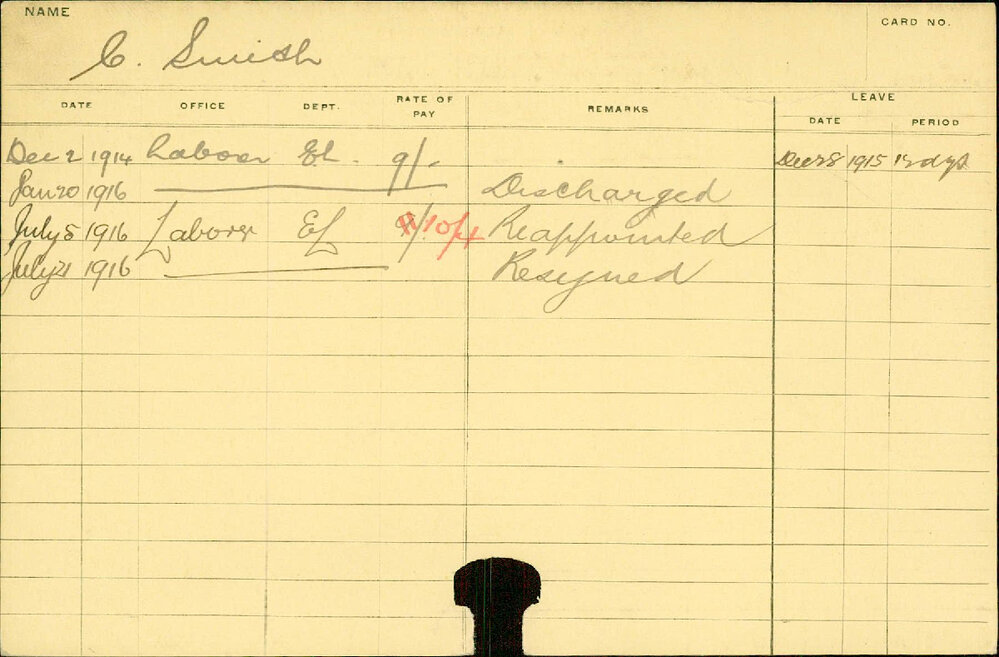 NAME
CARD NO.
C. Smith
DATE OFFICE DEPT. RATE OF PAY REMARKS LEAVE
DATE PERIOD
Dec 2 1914 Labover El. 9/- Dec 28 1915 12 dys
Jan 20 1916 Discharged
July 5 1916 Laborer EL 9/. 10/4 Reappointed
July 21 1916 Resigned